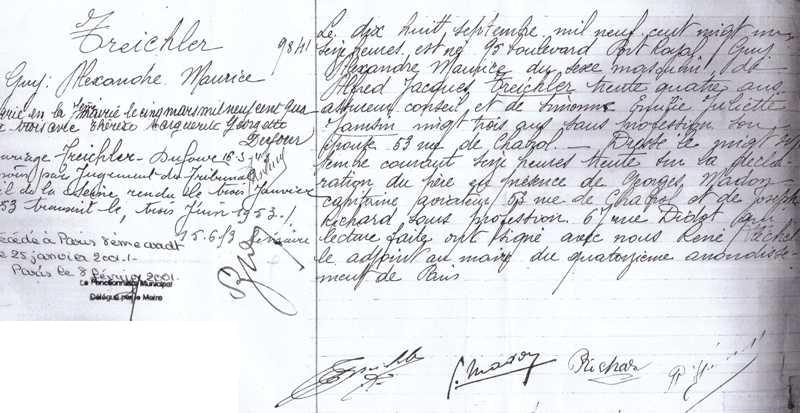 Treichler
9841
Guy. Alexandre. Maurice
en la Mairie le cinq mars mil neuf cent qua
trois avec Thérèse Marguerite Georgette
Dufour
Treichler-Dufour
par Jugement du Tribunal
de la Seine rendu le trois Janvier
53 transcrit le, trois Juin 1953./.
15.6/3
décédé à Paris 8ème arrdt
le 25 janvier 2001.-
Paris le 8 février 2001.
Le Fonctionnaire Municipal
Délégué par le Maire
Le dix huit septembre mil neuf cent vingt
seize heures, est né 95 boulevard Port Royal, Guy
Alexandre Maurice du sexe masculin, de
Alfred Jacques Treichler trente quatre ans
assureur conseil et de Simonne Juliette
Jansin vingt trois ans sans profession son
épouse 53 rue de . Dressé le vingt sep
tembre courant seize heures trente sur la décla
ration du père en présence de Georges
capitaine aviateur rue de et de Joseph
Richard sans profession 67 rue Didot qui
lecture faite ont signé avec nous René
le adjoint au maire du quatorzième arrondisse
ment de Paris
Richard